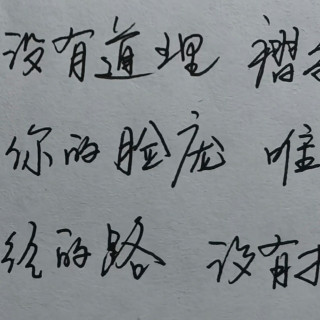 没有道理 褶
你的脸庞 唯
经的路 没有